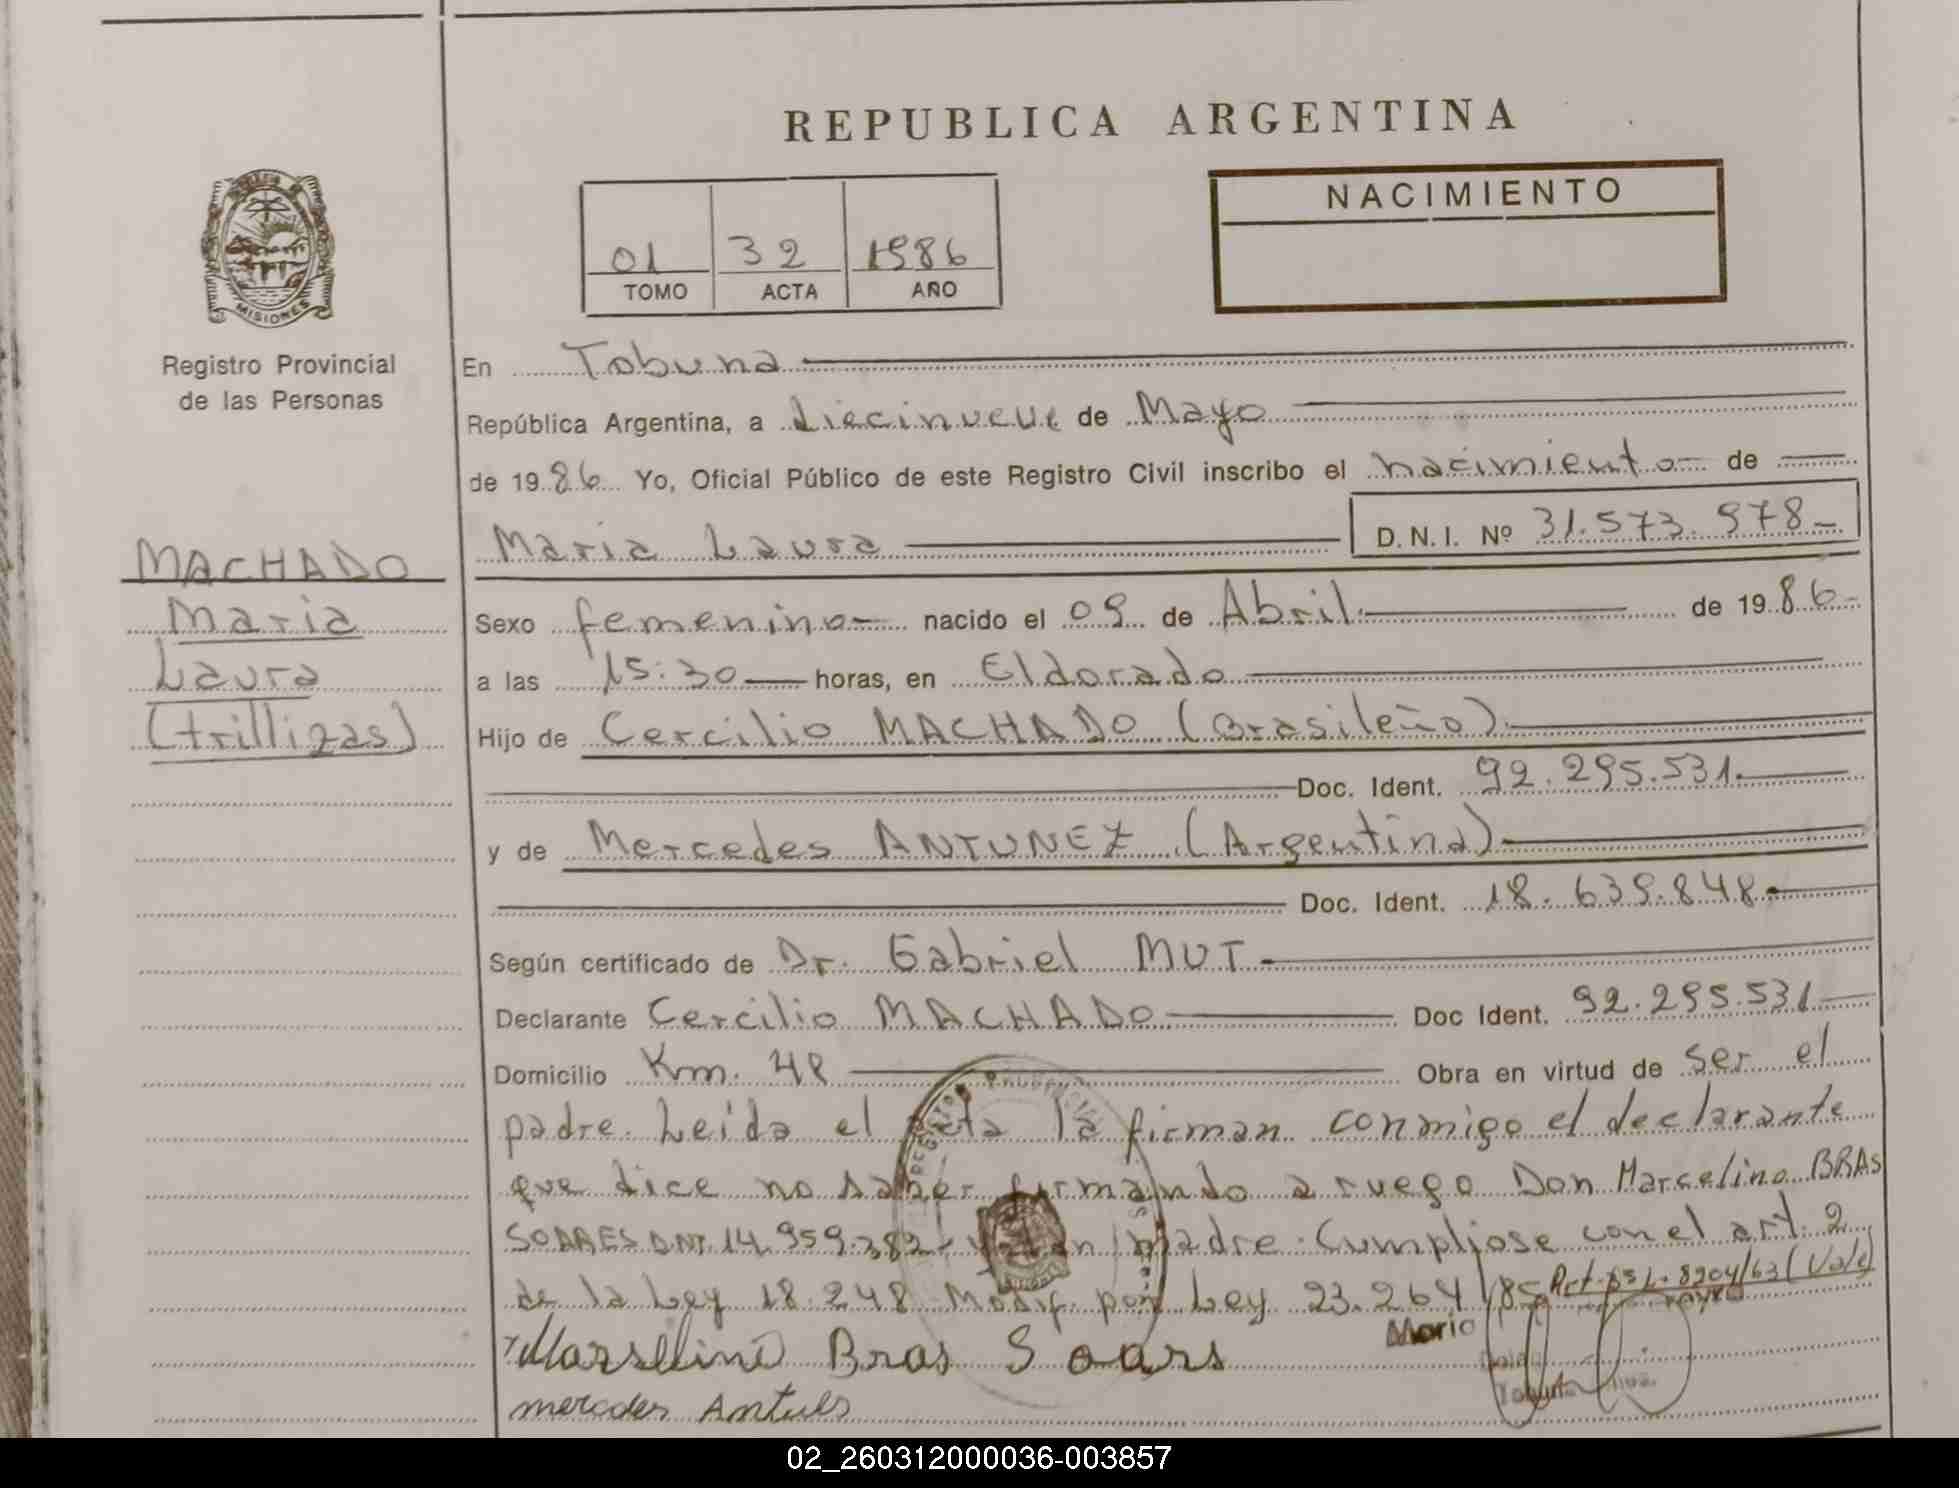 REPUBLICA ARGENTINA
NACIMIENTO
01 32 1986
TOMO ACTA AÑO
MISIONES
Registro Provincial
de las Personas
En Tobuna
República Argentina, a diecinueve de Mayo
de 1986 Yo, Oficial Público de este Registro Civil inscribo el nacimiento de
Maria Laura D.N.I. Nº 31.573.978-
MACHADO
Maria
Laura
(trillizas)
Sexo femenino nacido el 09 de Abril de 1986-
a las 15:30 horas, en Eldorado
Hijo de Cercilio MACHADO (Brasileño)
Doc. Ident. 92.295.531.
y de Mercedes ANTUNEZ (Argentina)
Doc. Ident. 18.639.848.
Según certificado de Dr. Gabriel MUT
Declarante Cercilio MACHADO Doc Ident. 92.295.531
Domicilio Km. 48 Obra en virtud de ser el
padre. Leída el acta la firman conmigo el declarante
que dice no saber firmando a ruego Don Marcelino BRAS
SOARES DNI. 14.959.382- madre. Cumpliose con el art. 2
de la Ley 18.248 Modif. por Ley 23.264/85 8204/63 (Vale)
Marsellino Bras Soars
Mario
mercedes Antules
02_260312000036-003857